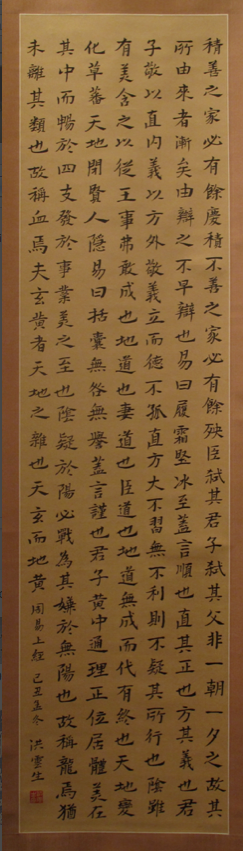 積善之家必有餘慶積不善之家必有餘殃臣弒其君子弒其父非一朝一夕之故其
所由來者漸矣由辯之不早辯也易曰履霜堅冰至蓋言順也直其正也方其義也君
子敬以直內義以方外敬義立而德不孤直方大不習無不利則不疑其所行也陰雖
有美含之以從王事弗敢成也地道也妻道也臣道也地道無成而代有終也天地變
化草蕃天地閉賢人隱易曰括囊無咎無譽蓋言謹也君子黃中通理正位居體美在
其中而暢於四支發於事業美之至也陰疑於陽必戰為其嫌於無陽也故稱龍焉猶
未離其類也故稱血焉夫玄黃者天地之雜也天玄而地黃 周易上經 己丑孟冬 洪雲生